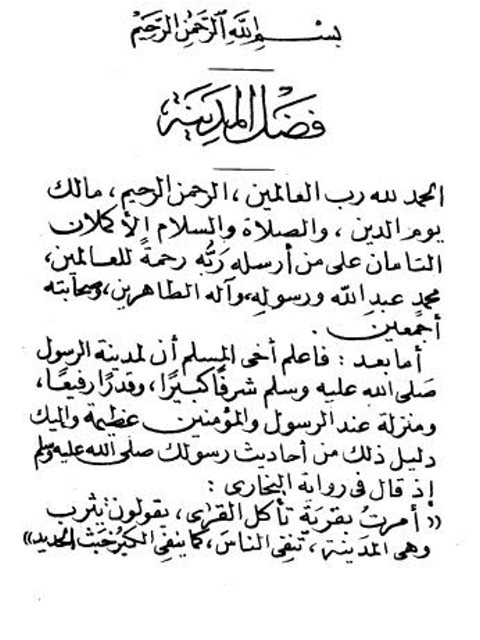 بسم الله الرحمن الرحيم
فضل المدينة
الحمد لله رب العالمين ، الرحمن الرحيم ، مالك
يوم الدين ، والصلاة والسلام الأكملان
التامان على من أرسله رَبُّه رحمةً للعالمين،
محمد عبد الله ورسوله، وآله الطاهرين، وصحابته
أجمعين .
أما بعد : فاعلم أخى المسلم أن لمدينة الرسول
صَلى الله عليه وسلم شرفًا كبيرًا، وقدرًا رفيعًا،
ومنزلة عند الرسول والمؤمنين عظيمة وإليك
دليل ذلك من أحاديث رسولك صلى الله عليه وسلم
إذ قال فى رواية البخارى :
(( أمرتُ بقريَة تأكل القرَى ، يقولون يثرب
وهى المدَينة ، تنِفى الناسَ ، كما ينفِى الكيرُ خَبَث الحديد ))